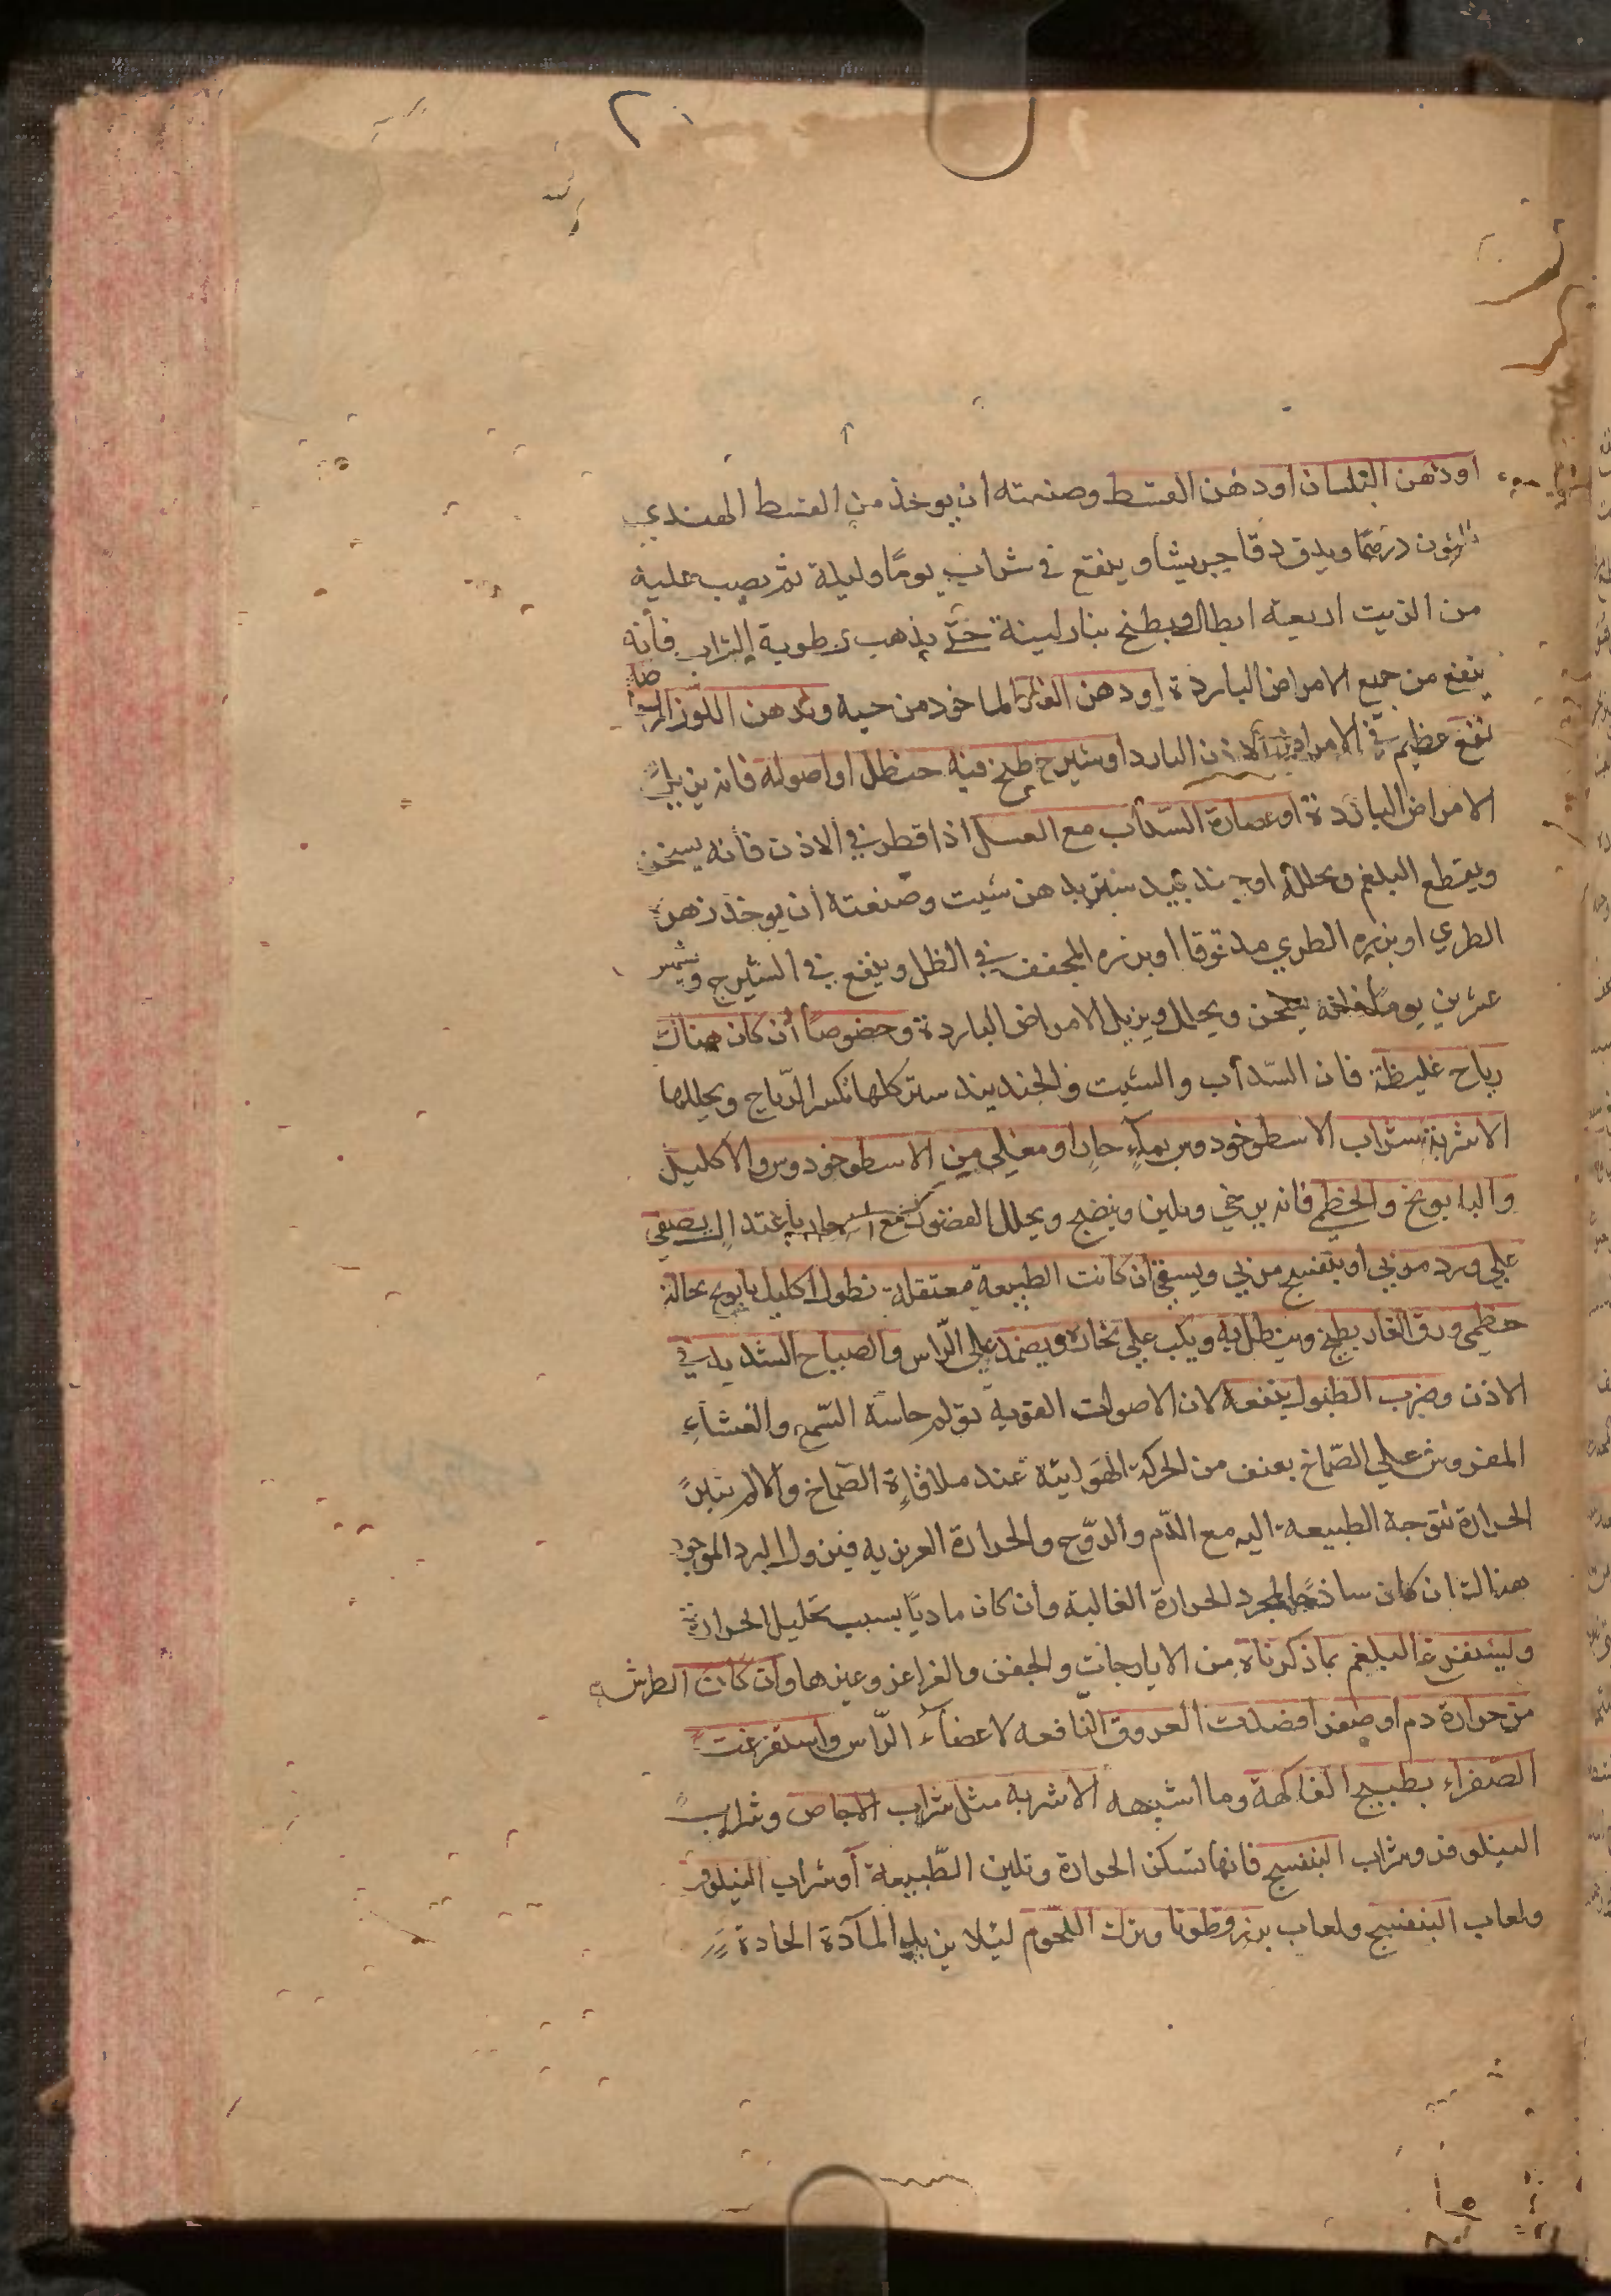 ٢٠
او دهن البلسان او دهن القسط وصنعته ان يوخذ من القسط الهندي
ثلثون درهمًا ويدق دقا جريشا وينقع في شراب يومًا وليلة ثم يصب عليه
من الزيت اربعة ارطال ويطبخ بنار لينة حتّي يذهب رطوبة الشراب فأنه
ينفع من جميع الامراض الباردة او دهن الغار الماخود من حبه ودهن اللوز المر ايضا
نفع عظيم في الامراض الاذن البارد او شيرج طبخ فيه حنظل او اصوله فانه يزيل
الامراض الباردة او عصارة السّدأب مع العسل اذا قطر في ألاذن فأنه يسخن
ويقطع البلغم ويحلله او جند بيد ستر بدهن شبت وصنعته أن يوخذ زهره
الطري او بزره الطري مدقوقا او بزره المجفف في الظل وينقع في الشيرج ويشمس
عشرين يومًا فانه يسخن ويحلل ويزيل الامراض الباردة وخصوصًا أن كان هناك
رياح غليظة فان السّدأب والشبت والجندبيد ستر كلها تكسر الرّياح ويحللها
الاشربة شراب الاسطوخودوس بمآءٍ حار او مغلي من الاسطوخودوس والاكليل
والبابونج والخطمي فانه يرخي ويلين وينضج ويحلل الفضول مع حار باعتدال يصفي
علي ورد مربي او بنفسج مربي ويسقي ان كانت الطبيعة معتقلة نطول اكليل بابونج نخالة
خطمي ورق الغار يطبخ وينطل به ويكب علي بخاره ويضمد علي الرّاس والصياح الشديد في
الاذن وضرب الطبول ينفعه لان الاصوات القوية تولم حاسة السّمع والغشآءِ
المفروش علي الصّماخ بعنف من الحركة الهوائية عند ملاقاةِ الصّماخ والالم يثير
الحرارة فتتوجه الطبيعة اليه مع الدّم والروّح والحرارة الغريزيه فيزول البرد الموجود
هنالك ان كان ساذجًا لمجرد الحرارة الغالبة وأن كان ماديًا بسبب تحليل الحرارة
وليستفرغ البلغم بما ذكرناه من الايارجات والحقن والغراغر وغيرها وان كان الطرش
من حرارة دم او صفرا فصدت العروق النّافعه لاعضآء الرّاس واستفرغت
الصفراء بطبيخ الفاكهة وما اشبهه الاشربه مثل شراب الاجاص وشراب
النيلوفر وشراب البنفسج فانها تسكن الحرارة وتلين الطّبيعة أو شراب النيلوفر
ولعاب البنفسج ولعاب بزر قطونا وترك اللحّوم ليلا يزيد المآدّة الحادة